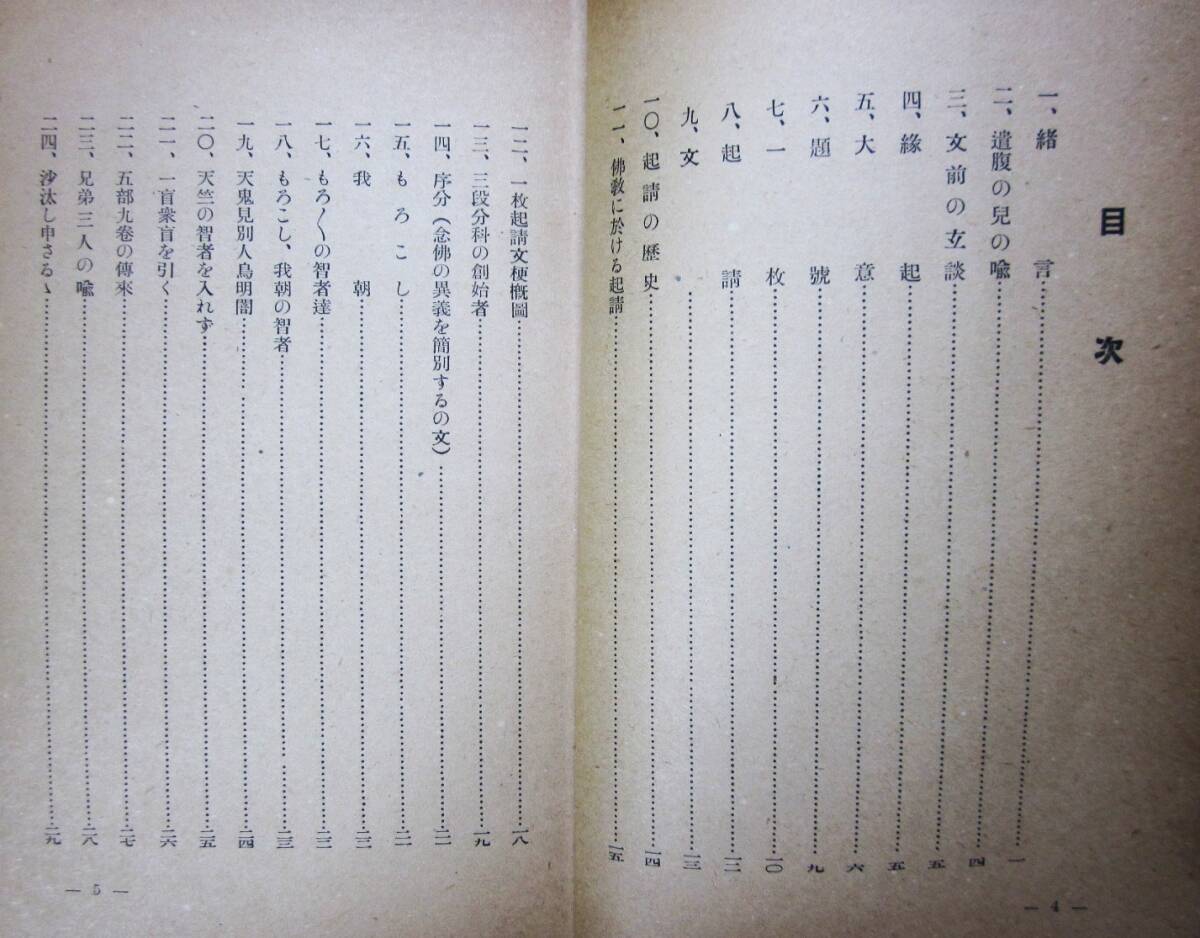 目次
一、緒言……一
二、遺腹の兒の喩……四
三、文前の玄談……五
四、緣起……五
五、大意……六
六、題號……九
七、一枚……一〇
八、起請……一二
九、文……一三
一〇、起請の歷史……一四
一一、佛敎に於ける起請……一五
— 4 —
一二、一枚起請文梗概圖……一八
一三、三段分科の創始者……一九
一四、序分（念佛の異義を簡別するの文）……二一
一五、もろこし……二一
一六、我朝……二二
一七、もろ〳〵の智者達……二二
一八、もろこし、我朝の智者……二三
一九、天鬼見別人鳥明闇……二四
二〇、天竺の智者を入れず……二五
二一、一盲衆盲を引く……二六
二二、五部九卷の傳來……二七
二三、兄弟三人の喩……二八
二四、沙汰し申さるゝ……二九
— 5 —